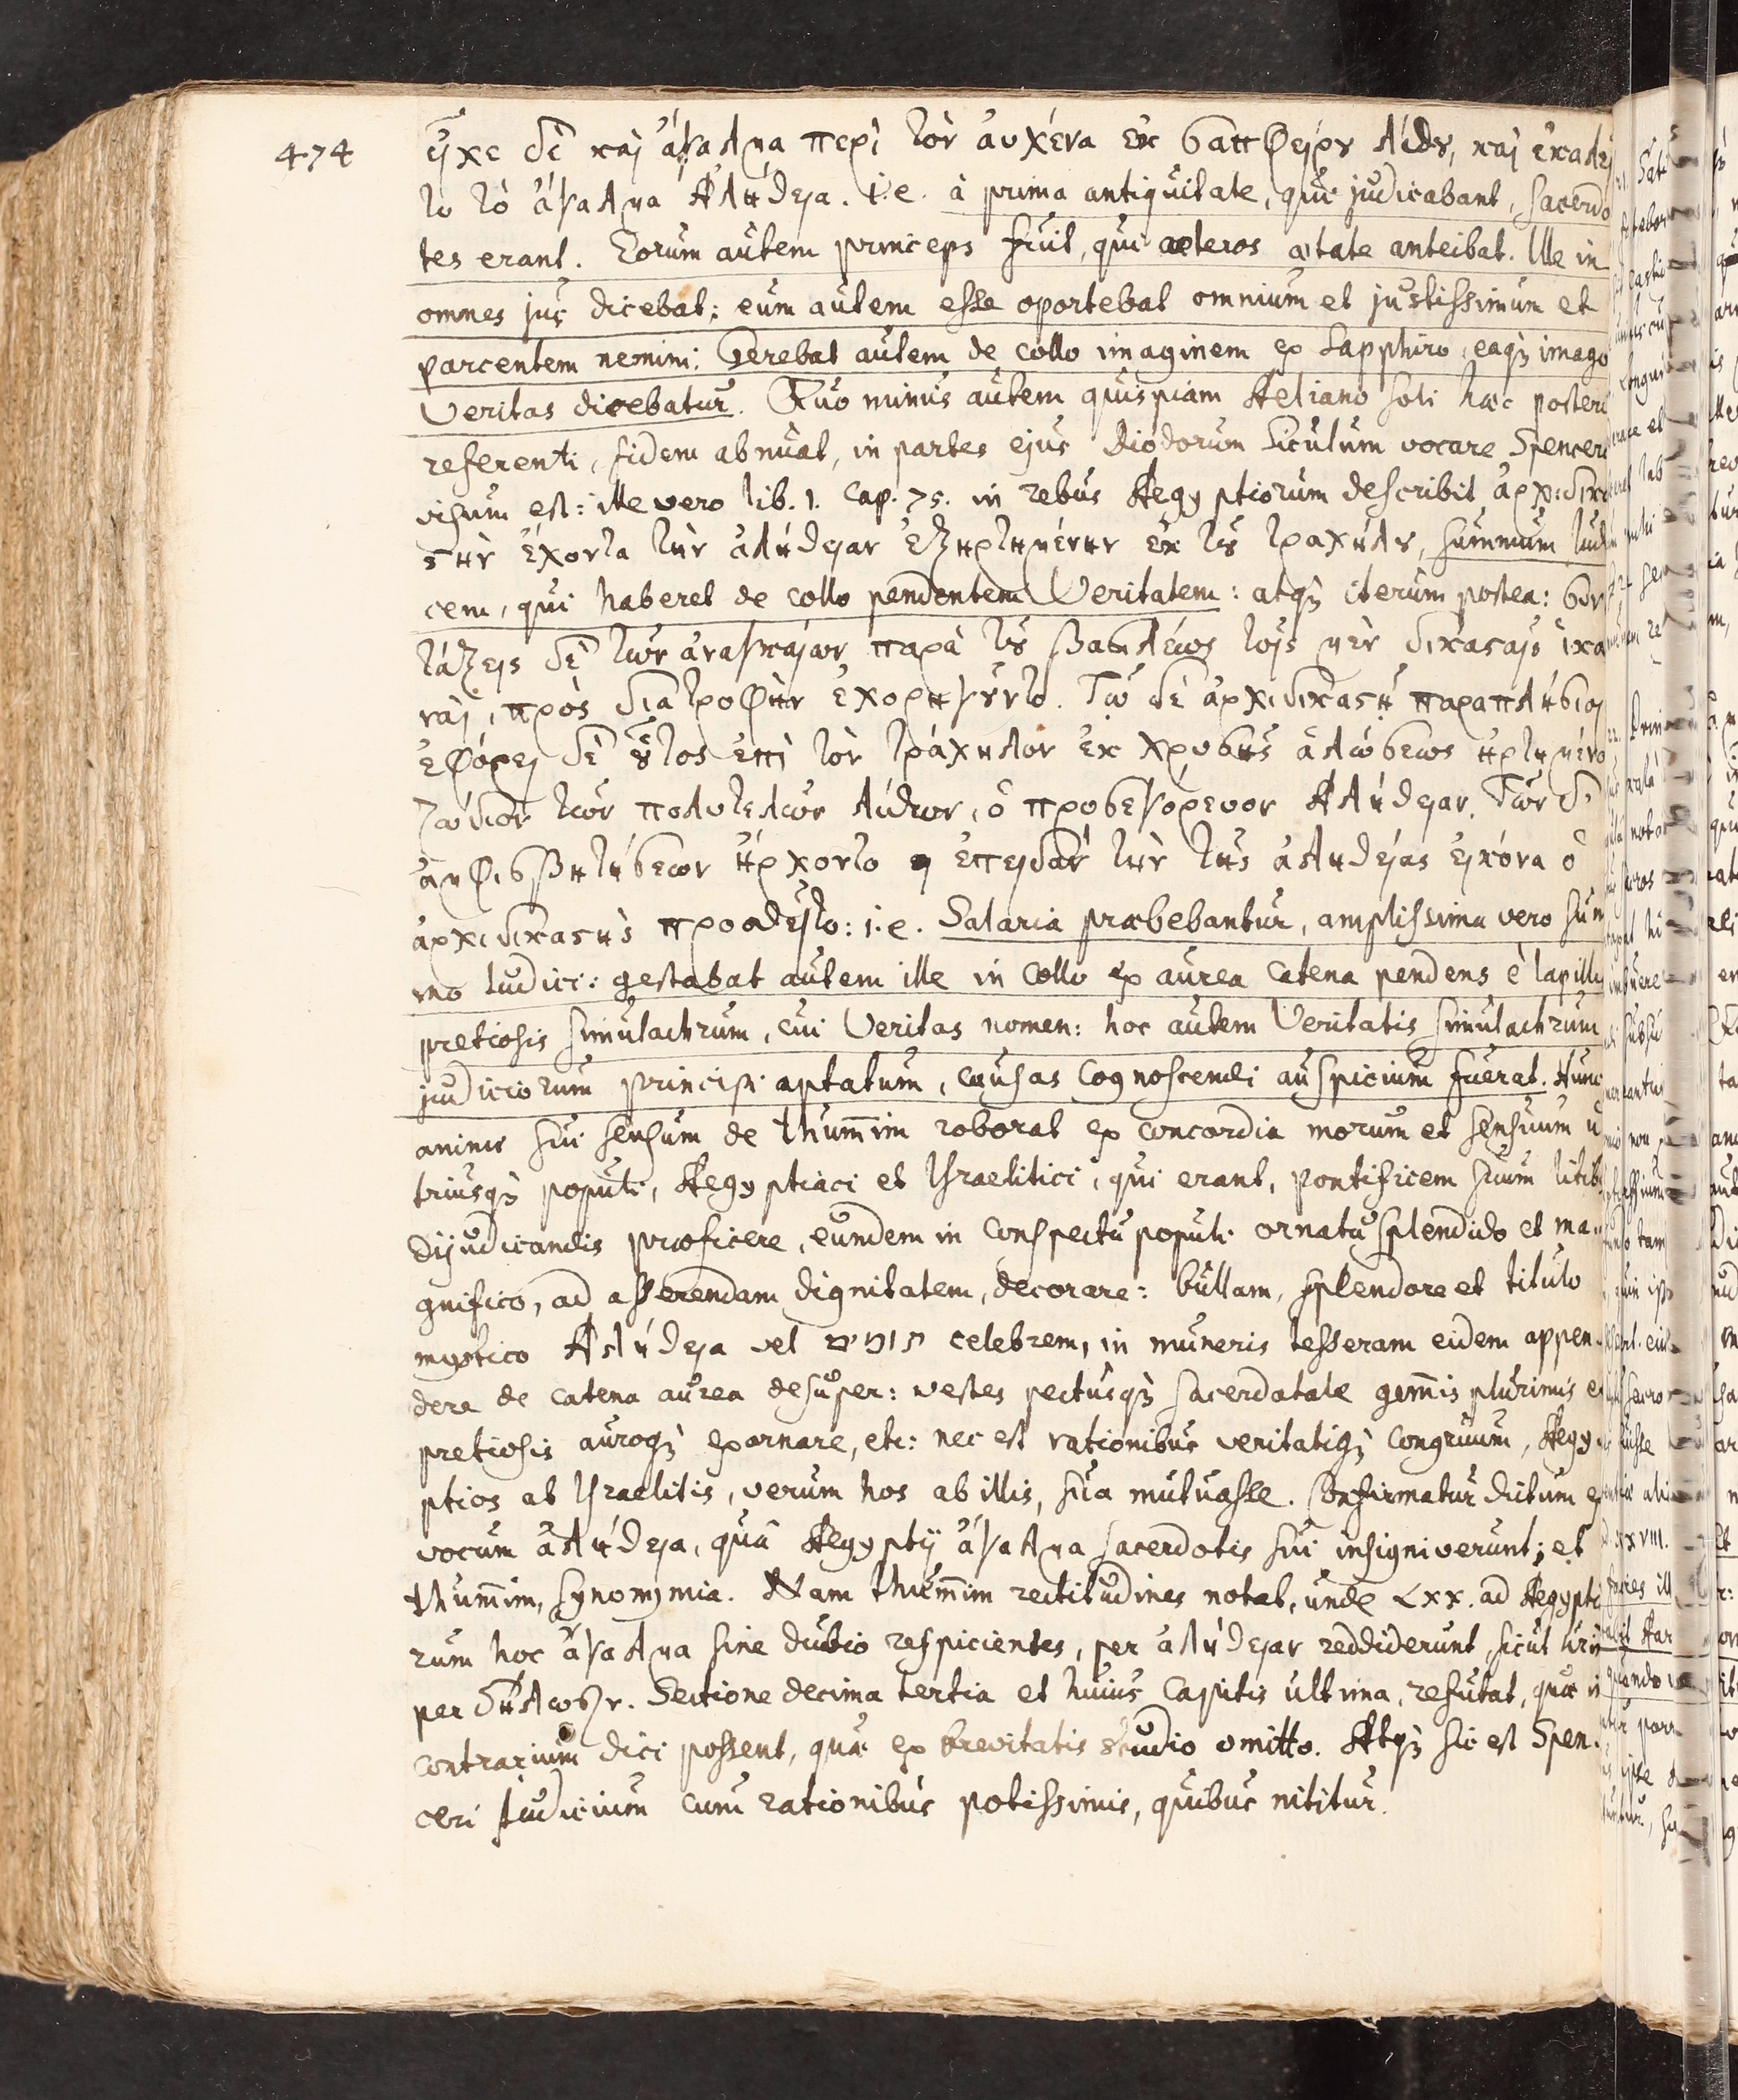 474
εἶχε δὲ καὶ ἄγαλμα περὶ τὸν ἀυχένα ἐκ σαπφείρου λίθου, καὶ ἐκαλεῖ
το τὸ ἄγαλμα Ἀλήθεια. i.e. à prima antiquitate, qui judicabant, sacerdo
tes erant. Eorum autem princeps fuit, qui cæteros ætate anteibat. Ille in
omnes jus dicebat; eum autem esse oportebat omnium et justissimum et
parcentem nemini: Gerebat autem de collo imaginem ex Sapphiro, eaqȝ imago
Veritas dicebatur. Quo minus autem quispiam Aeliano soli hæc posteris
referenti, fidem abnuat, in partes ejus Diodorum Siculum vocare Spencero
visum est: ille vero lib. 1. Cap. 75. in rebus Aegyptiorum describit ἀρχιδικα
στὴν ἔχοντα τὴν ἀλήθειαν ἐξηρτημένην ἐκ τοῦ τραχήλου, summum Iudi
cem, qui haberet de collo pendentem Veritatem: atqȝ iterum postea: συν
τάξεις δὲ τῶν ἀναγκαίων παρὰ τοῦ βασιλέως τοῖς μὲν δικασταῖς ἱκα
ναὶ, πρὸς διατροφὴν ἐχορηγοῦντο. Τῷ δὲ ἀρχιδικαστῇ παραπλήσιαι
ἐφόρει δὲ οὗτος ἐπὶ τὸν τράχηλον ἐκ χρυσῆς ἁλώσεως ἠρτημένο
ζώδιον τῶν πολυτελῶν λίθων, ὃ προσεγόρευον Ἀλήθειαν. Τῶν δ'
ἀμφισβητήσεων ἤρχοντο ἐπειδὰν τὴν τῆς ἀληθείας εἰκόνα ὁ
ἀρχιδικαστὴς προσθεῖτο: i.e. Salaria præbebantur, amplissima vero sum
mo Iudici: gestabat autem ille in Collo ex aurea Catena pendens è lapillis
pretiosis simulachrum, cui Veritas nomen: hoc autem Veritatis simulachrum
judiciorum principi aptatum, causas Cognoscendi auspicium fuerat. Hunc
animis sui sensum de Thum̄im roborat ex Concordia morum et sensuum u
triusqȝ populi, Aegyptiaci et Israelitici, qui erant, pontificem suum litib
dijudicandis præficere, eundem in Conspectu populi ornatu splendido et ma-
gnifico, ad asserendam dignitatem, decorare: bullam, splendore et titulo
mystico Ἀλήθεια vel תומים celebrem, in muneris tesseram eidem appen-
dere de catena aurea desuper: vestes pectusqȝ sacerdotale gem̄is plurimis et
pretiosis auroqȝ exornare, etc: nec est rationibus veritatiqȝ Congruum, Aegy-
ptios ab Israelitis, verum hos ab illis, sua mutuasse. Confirmatur dictum ex
vocum ἀλήθεια, quâ Aegyptij ἄγαλμα sacerdotis sui insigniverunt; et
Thum̄im, synonymia. Nam Thum̄im rectitudines notat, unde LXX. ad Aegyptio
rum hoc ἄγαλμα sine dubio respicientes, per ἀλήθειαν reddiderunt, sicut Urim
per δήλωσιν. Sectione decima tertia et huius Capitis ultima, refutat, quæ in
contrarium dici possent, quæ ex brevitatis studio omitto. Atqȝ sic est Spen-
ceri Iudicium cum rationibus potissimis, quibus nititur.